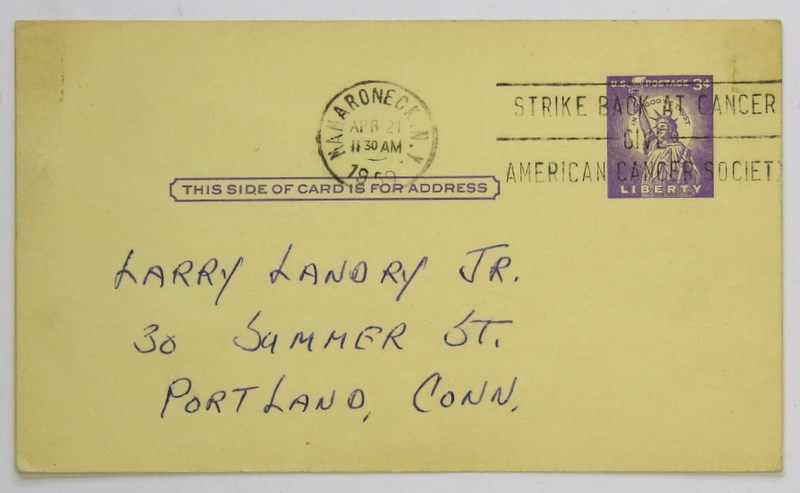 MAMARONECK, N.Y.
APR 21
11 30 AM
1959
STRIKE BACK AT CANCER
GIVE
AMERICAN CANCER SOCIETY
U.S. POSTAGE 3¢
IN GOD WE TRUST
LIBERTY
THIS SIDE OF CARD IS FOR ADDRESS
LARRY LANDRY JR.
30 SUMMER ST.
PORTLAND, CONN.